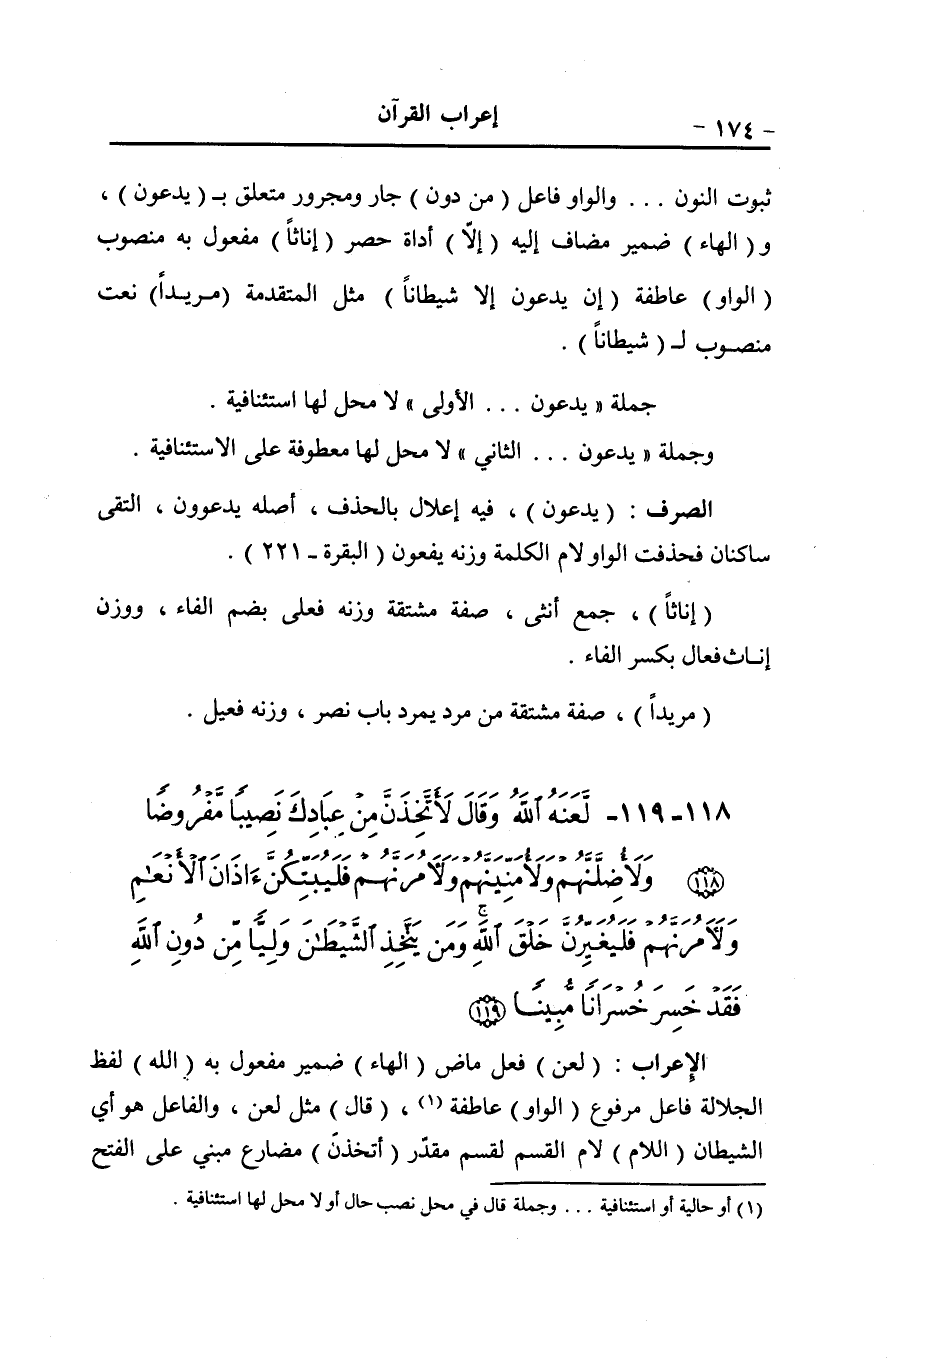 إعراب القرآن
- ١٧٤ -
ثبوت النون ... والواو فاعل ( من دون ) جار ومجرور متعلق بـ ( يدعون ) ،
و ( الهاء ) ضمير مضاف إليه ( إلاّ ) أداة حصر ( إناثاً ) مفعول به منصوب
( الواو ) عاطفة ( إن يدعون إلا شيطاناً ) مثل المتقدمة ( مريداً ) نعت
منصوب لـ ( شيطاناً ) .
جملة « يدعون ... الأولى » لا محل لها استئنافية .
وجملة « يدعون ... الثاني » لا محل لها معطوفة على الاستئنافية .
الصرف : ( يدعون ) ، فيه إعلال بالحذف ، أصله يدعوون ، التقى
ساكنان فحذفت الواو لام الكلمة وزنه يفعون ( البقرة - ٢٢١ ) .
( إناثاً ) ، جمع أنثى ، صفة مشتقة وزنه فعلى بضم الفاء ، ووزن
إناث فعال بكسر الفاء .
( مريداً ) ، صفة مشتقة من مرد يمرد باب نصر ، وزنه فعيل .
١١٨ - ١١٩ - لَّعَنَهُ ٱللَّهُ وَقَالَ لَأَتَّخِذَنَّ مِنْ عِبَادِكَ نَصِيبًا مَّفْرُوضًا
﴿١١٨﴾ وَلَأُضِلَّنَّهُمْ وَلَأُمَنِّيَنَّهُمْ وَلَءَامُرَنَّهُمْ فَلَيُبَتِّكُنَّ ءَاذَانَ ٱلْأَنْعَٰمِ
وَلَءَامُرَنَّهُمْ فَلَيُغَيِّرُنَّ خَلْقَ ٱللَّهِ ۚ وَمَن يَتَّخِذِ ٱلشَّيْطَٰنَ وَلِيًّا مِّن دُونِ ٱللَّهِ
فَقَدْ خَسِرَ خُسْرَانًا مُّبِينًا ﴿١١٩﴾
الإعراب : ( لعن ) فعل ماض ( الهاء ) ضمير مفعول به ( الله ) لفظ
الجلالة فاعل مرفوع ( الواو ) عاطفة (١) ، ( قال ) مثل لعن ، والفاعل هو أي
الشيطان ( اللام ) لام القسم لقسم مقدّر ( أتخذنَ ) مضارع مبني على الفتح
(١) أو حالية أو استئنافية ... وجملة قال في محل نصب حال أو لا محل لها استئنافية .